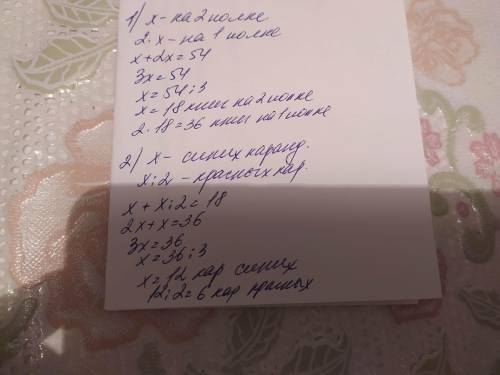 1) х - на 2 полке
2·х - на 1 полке
х+2х=54
3х=54
х=54:3
х=18 книг на 2 полке
2·18=36 книг на 1 полке
2) х - синих каранд.
х:2 - красных кар.
х + х:2=18
2х+х=36
3х=36
х=36:3
х=12 кар синих
12:2=6 кар красных